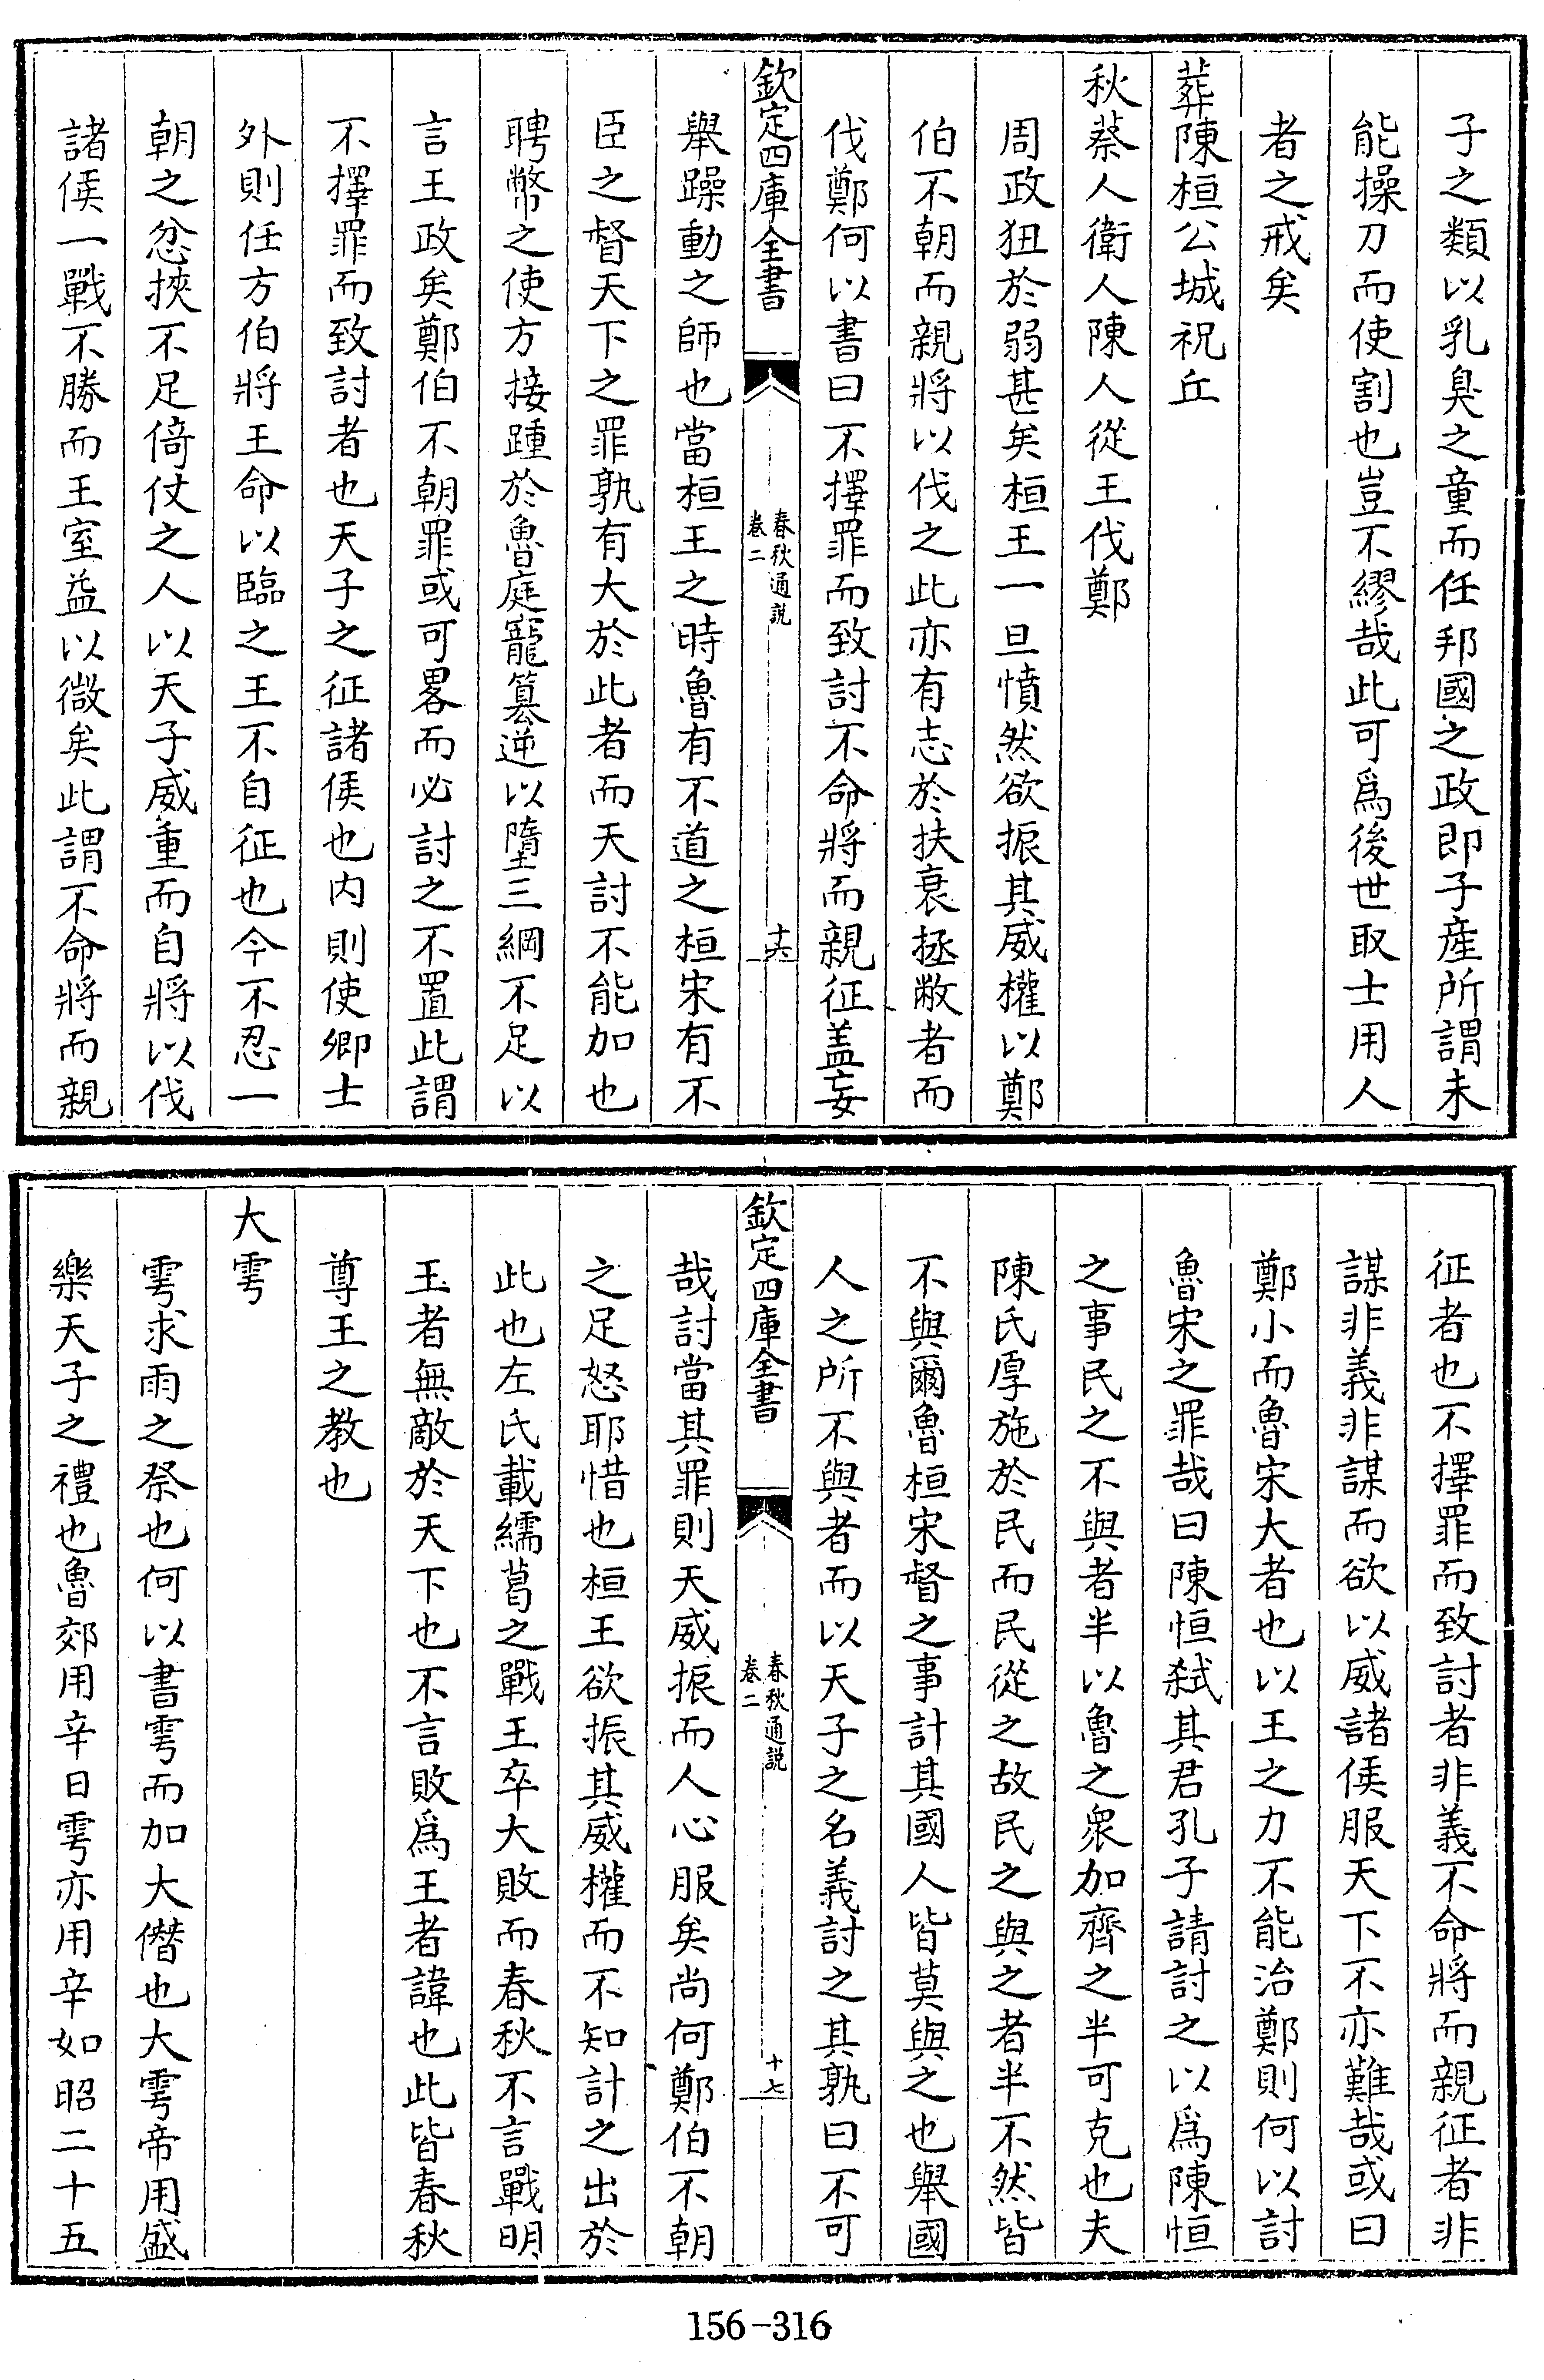 子之類以乳臭之童而任邦國之政即子產所謂未
能操刀而使割也豈不繆哉此可爲後世取士用人
者之戒矣
葬陳桓公城祝丘
秋蔡人衛人陳人從王伐鄭
周政狃於弱甚矣桓王一旦憤然欲振其威權以鄭
伯不朝而親將以伐之此亦有志於扶衰拯敝者而
伐鄭何以書曰不擇罪而致討不命將而親征盖妄
欽定四庫全書
春秋通説
卷二
十六
舉躁動之師也當桓王之時魯有不道之桓宋有不
臣之督天下之罪孰有大於此者而天討不能加也
聘幣之使方接踵於魯庭寵篡逆以墮三綱不足以
言王政矣鄭伯不朝罪或可畧而必討之不置此謂
不擇罪而致討者也天子之征諸侯也内則使卿士
外則任方伯將王命以臨之王不自征也今不忍一
朝之忿挾不足倚仗之人以天子威重而自將以伐
諸侯一戰不勝而王室益以微矣此謂不命將而親
征者也不擇罪而致討者非義不命將而親征者非
謀非義非謀而欲以威諸侯服天下不亦難哉或曰
鄭小而魯宋大者也以王之力不能治鄭則何以討
魯宋之罪哉曰陳恒弑其君孔子請討之以爲陳恒
之事民之不與者半以魯之衆加齊之半可克也夫
陳氏厚施於民而民從之故民之與之者半不然皆
不與爾魯桓宋督之事計其國人皆莫與之也舉國
人之所不與者而以天子之名義討之其孰曰不可
欽定四庫全書
春秋通説
卷二
十七
哉討當其罪則天威振而人心服矣尚何鄭伯不朝
之足怒耶惜也桓王欲振其威權而不知計之出於
此也左氏載繻葛之戰王卒大敗而春秋不言戰明
王者無敵於天下也不言敗爲王者諱也此皆春秋
尊王之教也
大雩
雩求雨之祭也何以書雩而加大僭也大雩帝用盛
樂天子之禮也魯郊用辛日雩亦用辛如昭二十五
156-316